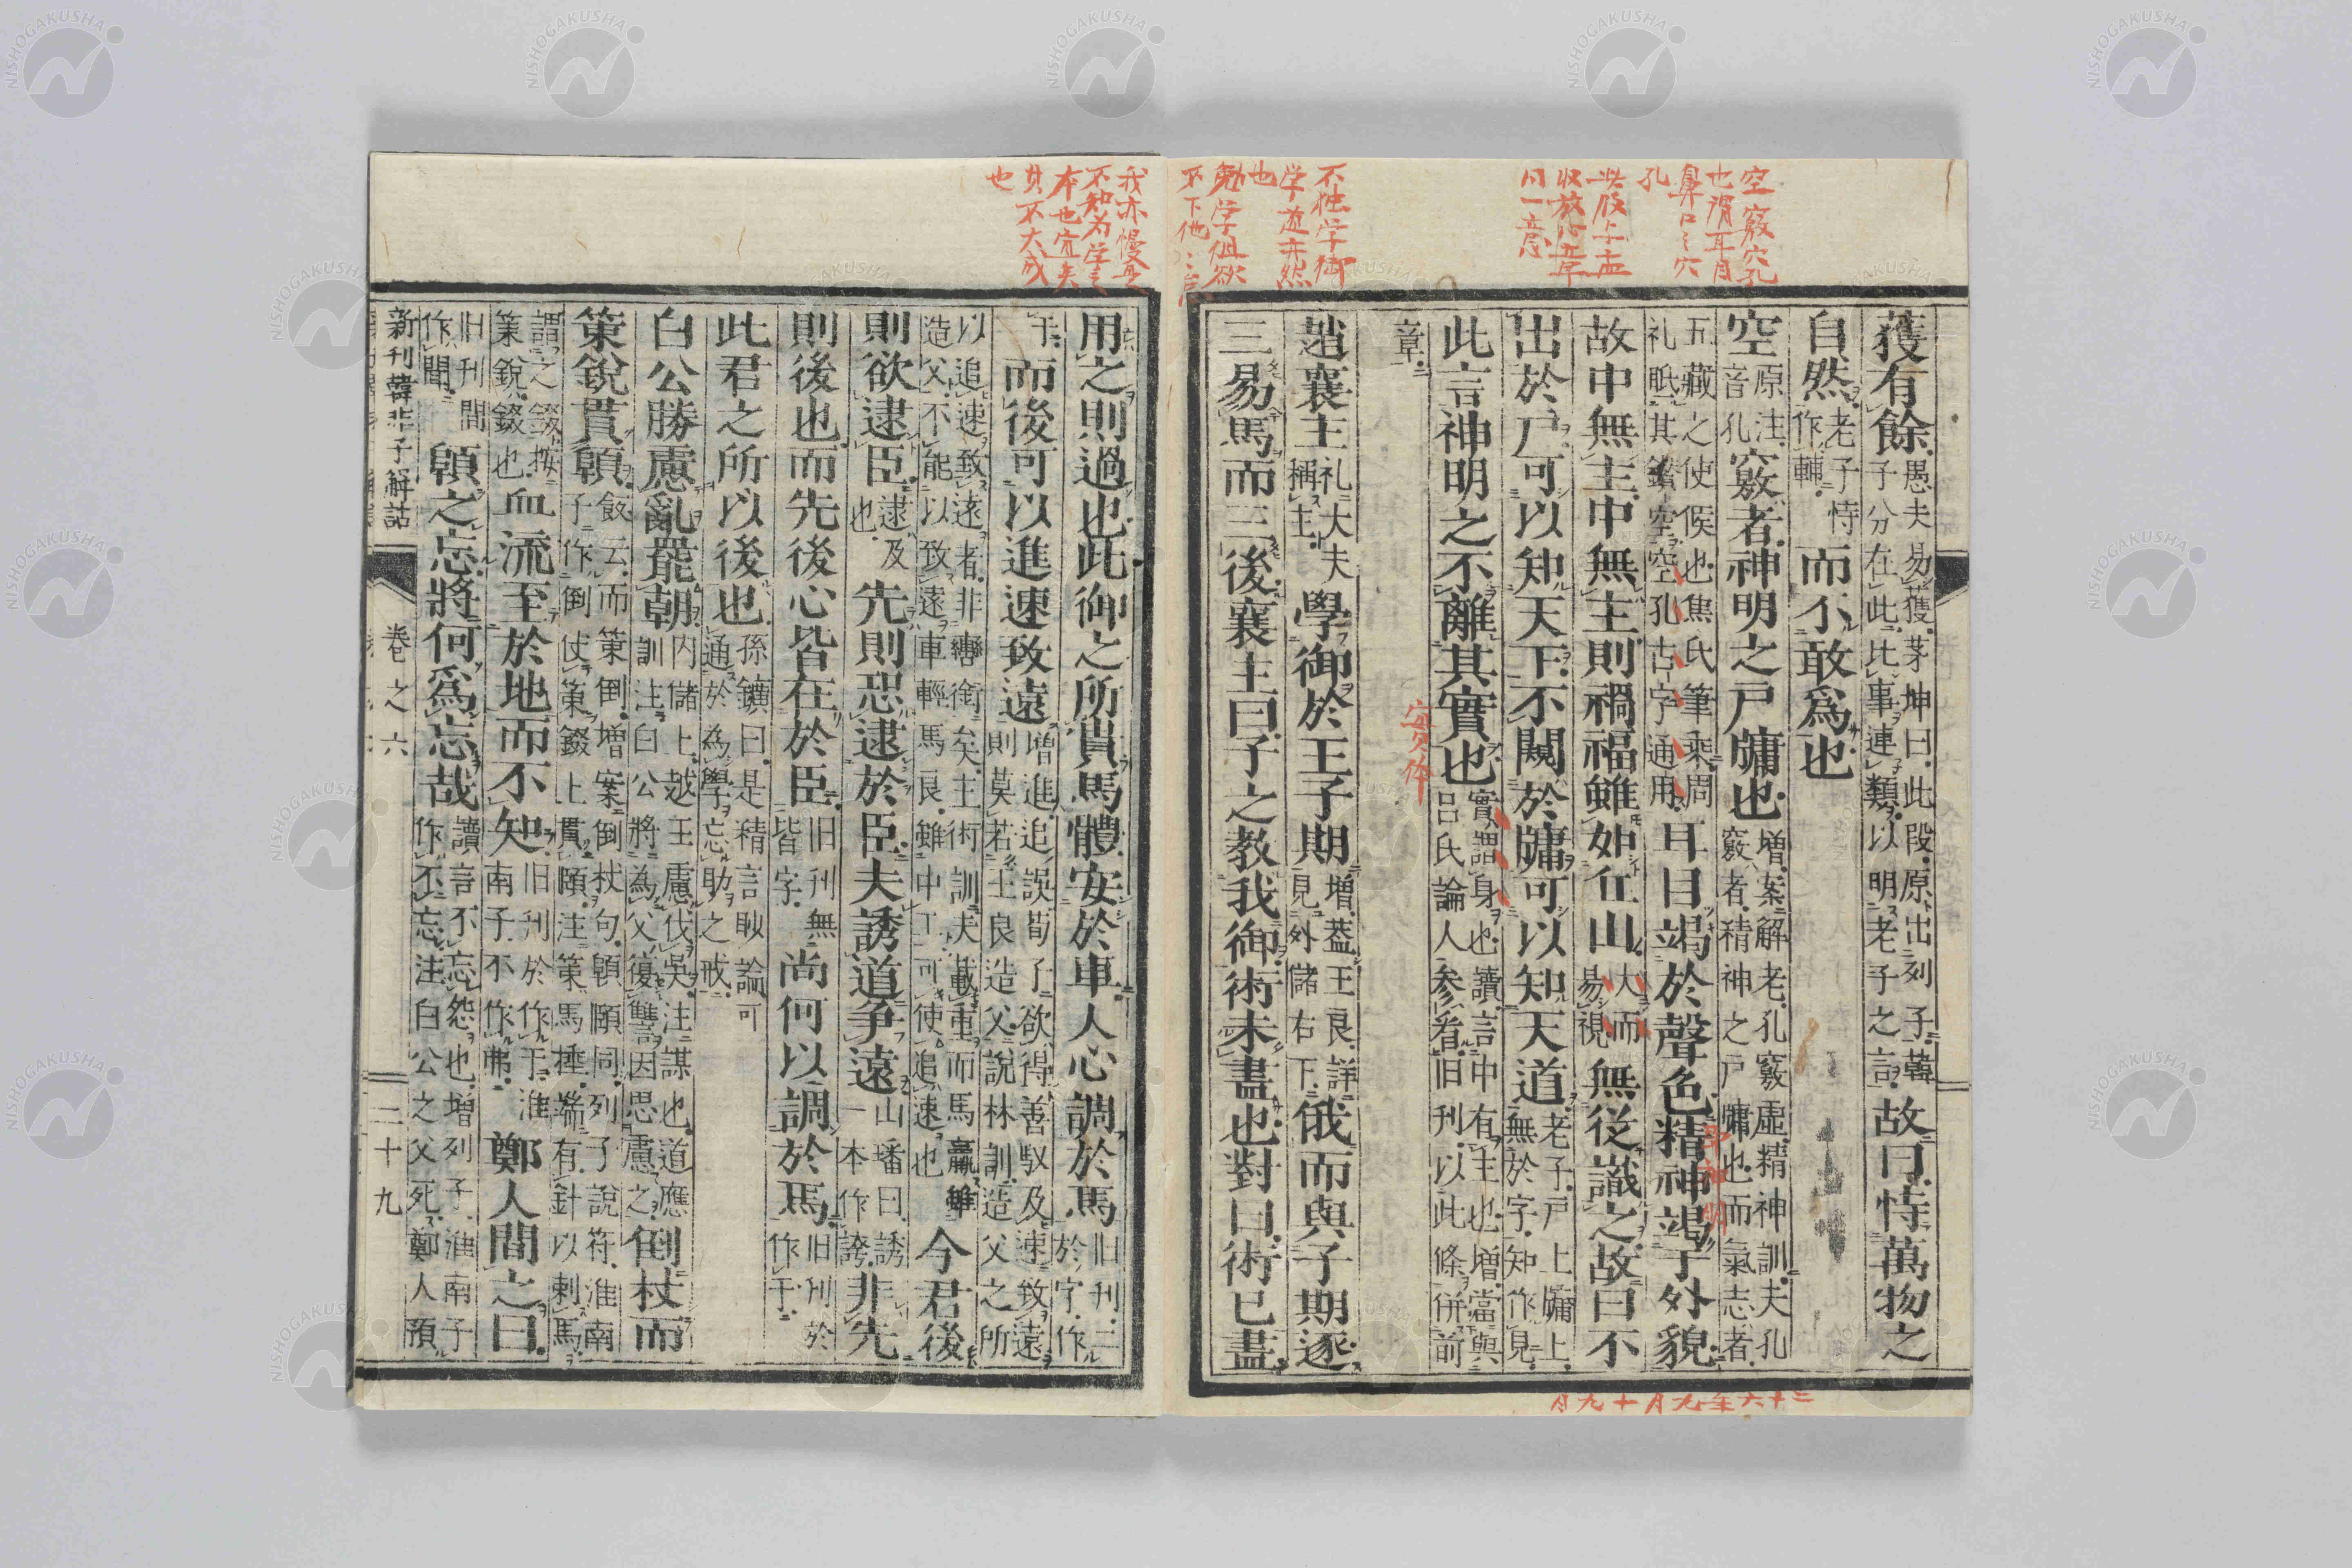 空竅穴孔
也謂耳目
鼻口之穴
孔
此段与孟
收放心章
同一意
不独学御
学道亦然
也
勉学但欲
不下他
獲有餘愚夫易獲茅坤曰此段原出列子韓
子分在此比事連類以明老子之言故曰恃萬物之
自然老子恃
作輔而不敢爲也
空原注
音孔竅者神明之戶牖也增案解老孔竅虛精神訓夫孔
竅者精神之戶牖也而氣志者
五藏之使候也焦氏筆乗周
礼眡其鑽空空孔古字通用耳目竭於聲色精神竭于外貌
即神明
故中無主中無主則禍福雖如丘山大而
易視無従識之故曰不
出於戶可以知天下不闚於牖可以知天道老子戶上牖上
無於字知作見
此言神明之不離其實也實謂身也讀言中有主也増當與
呂氏論人参看旧刊以此條併前
章
趙襄主礼大夫
稱主學御於王子期增蓋王良詳
見外儲右下俄而與子期逐
三易馬而三後襄主曰子之教我御術未盡也對曰術已盡
三十六年九月十九日
我亦慢
不知為学之
本也宜矣
其不大成
也
用之則過也此御之所貴馬體安於車人心調於馬旧刊三
於字作
于而後可以進速致遠增進追誤荀子欲得善馭及速致遠
則莫若王良造父說林訓造父之所
以追速致遠者非轡銜矣主術訓夫載重而馬羸雖
造父不能以致遠車輕馬良雖中工可使追速也今君後
則欲逮臣逮及
也先則恐逮於臣夫誘道争遠山璠曰誘
一本作誇非先
則後也而先後心皆在於臣旧刊無
皆字尚何以調於馬旧刊於
作于
此君之所以後也孫鑛曰是積言耿論可
通於為學忘助之戒
白公勝慮亂罷朝内儲上越王慮伐吳注謀也道應
訓注白公將為父復讐因思慮之倒杖而
策銳貫顊飯云而策倒増案倒杖句顊頤同列子說符淮南
子作倒仗策錣上貫頤注策馬捶端有針以剌馬
謂之錣按
策銳錣也血流至於地而不知旧刊於作于淮
南子不作弗鄭人聞之曰
旧刊間
作聞顊之忘將何爲忘哉讀言不忘怨也增列子淮南子
作不忘注白公之父死鄭人預
新刊韓非子解詁
卷之六
三十九